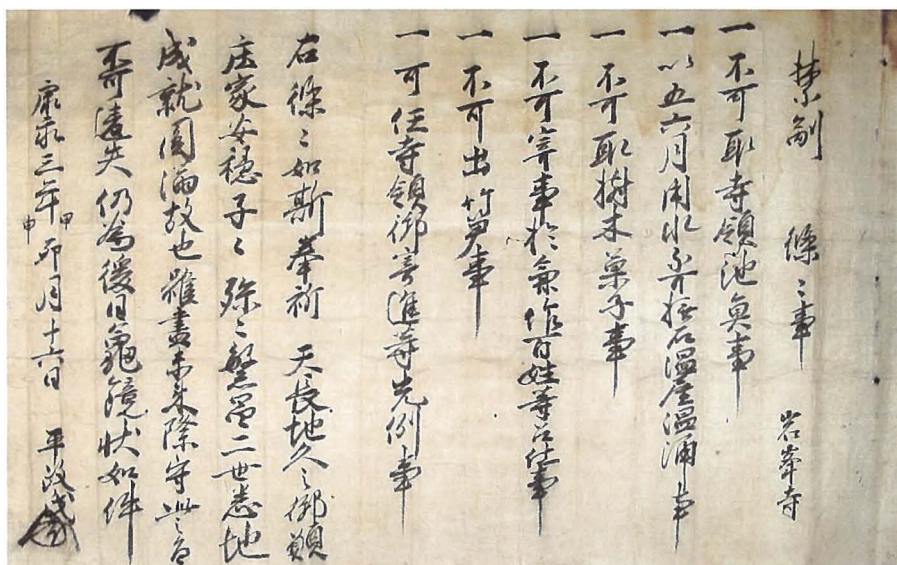 禁制　條々事　岩峯寺
一 不可取寺領池魚事
一 以五六月用水不弁極石温屋温涌事
一 不可取樹木菓子事
一 不可寄事於兼作百姓等召仕事
一 不可出竹笋事
一 可任寺領御寄進等先例事
右條々如斯奉祈　天長地久之御願
庄家安穏子々孫々繁昌二世悉地
成就圓満故也雖盡未来際守此旨
不可遺失仍為後日亀鏡状如件
康永三年甲申卯月十六日　平政